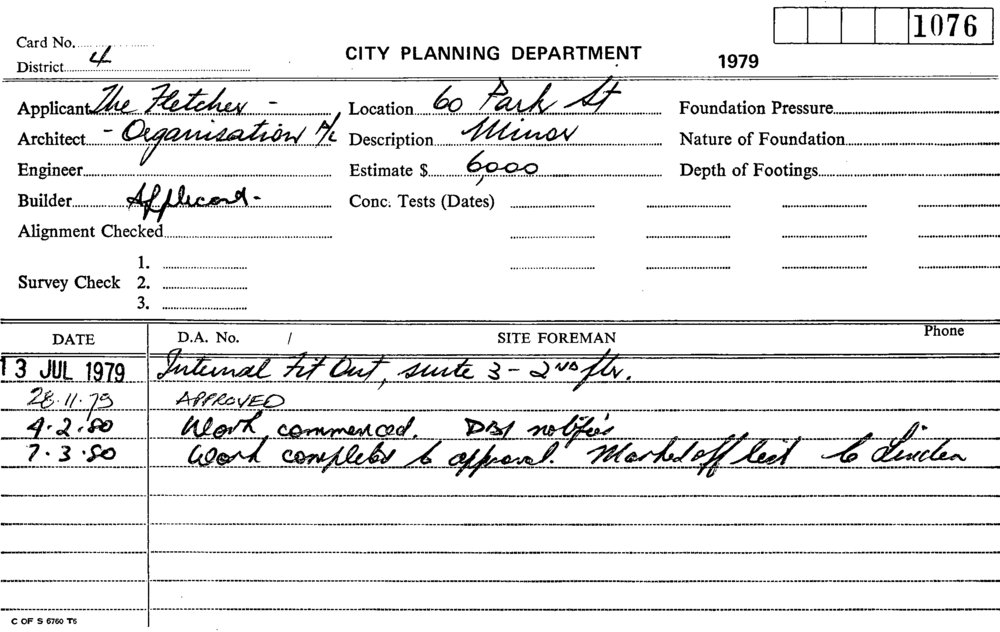 1076
Card No.
District 4
CITY PLANNING DEPARTMENT
1979
Applicant The Fletcher -
Architect - Organisation P/L
Engineer
Builder Applicant-
Alignment Checked
Survey Check
1.
2.
3.
Location 60 Park St
Description Minor
Estimate $ 6,000
Conc. Tests (Dates)
Foundation Pressure
Nature of Foundation
Depth of Footings
DATE D.A. No. / SITE FOREMAN Phone
13 JUL 1979 Internal Fit Out, suite 3 - 2ND flr.
28.11.79 APPROVED
4.2.80 Work commenced. DBI notifies
7.3.80 Work completed to approval. Marked off list
C OF S 6760 T5